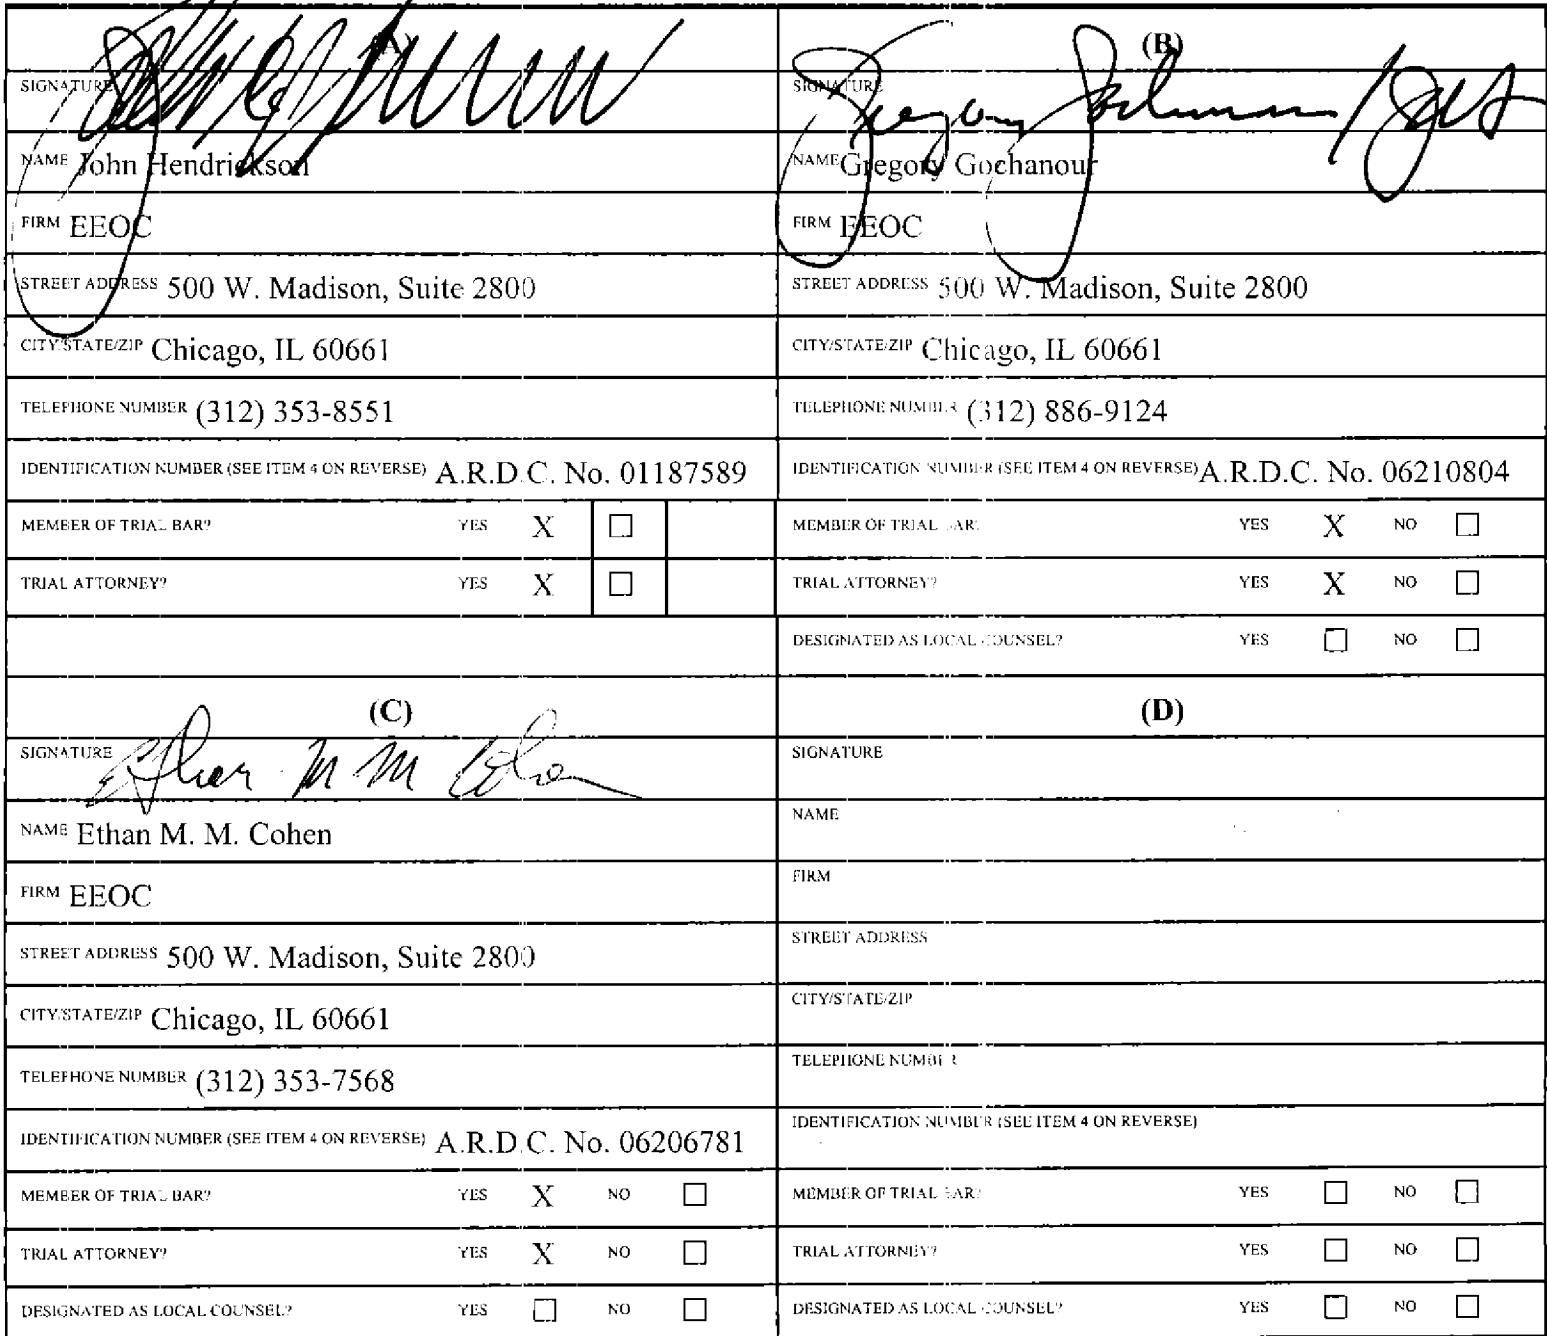 (A)
SIGNATURE
NAME John Hendrickson
FIRM EEOC
STREET ADDRESS 500 W. Madison, Suite 2800
CITY/STATE/ZIP Chicago, IL 60661
TELEPHONE NUMBER (312) 353-8551
IDENTIFICATION NUMBER (SEE ITEM 4 ON REVERSE) A.R.D.C. No. 01187589
MEMBER OF TRIAL BAR? YES X ☐
TRIAL ATTORNEY? YES X ☐
(B)
SIGNATURE Gregory Gochanour /
NAME Gregory Gochanour
FIRM EEOC
STREET ADDRESS 500 W. Madison, Suite 2800
CITY/STATE/ZIP Chicago, IL 60661
TELEPHONE NUMBER (312) 886-9124
IDENTIFICATION NUMBER (SEE ITEM 4 ON REVERSE) A.R.D.C. No. 06210804
MEMBER OF TRIAL BAR? YES X NO ☐
TRIAL ATTORNEY? YES X NO ☐
DESIGNATED AS LOCAL COUNSEL? YES ☐ NO ☐
(C)
SIGNATURE Ethan M M Cohen
NAME Ethan M. M. Cohen
FIRM EEOC
STREET ADDRESS 500 W. Madison, Suite 2800
CITY/STATE/ZIP Chicago, IL 60661
TELEPHONE NUMBER (312) 353-7568
IDENTIFICATION NUMBER (SEE ITEM 4 ON REVERSE) A.R.D.C. No. 06206781
MEMBER OF TRIAL BAR? YES X NO ☐
TRIAL ATTORNEY? YES X NO ☐
DESIGNATED AS LOCAL COUNSEL? YES ☐ NO ☐
(D)
SIGNATURE
NAME
FIRM
STREET ADDRESS
CITY/STATE/ZIP
TELEPHONE NUMBER
IDENTIFICATION NUMBER (SEE ITEM 4 ON REVERSE)
MEMBER OF TRIAL BAR? YES ☐ NO ☐
TRIAL ATTORNEY? YES ☐ NO ☐
DESIGNATED AS LOCAL COUNSEL? YES ☐ NO ☐